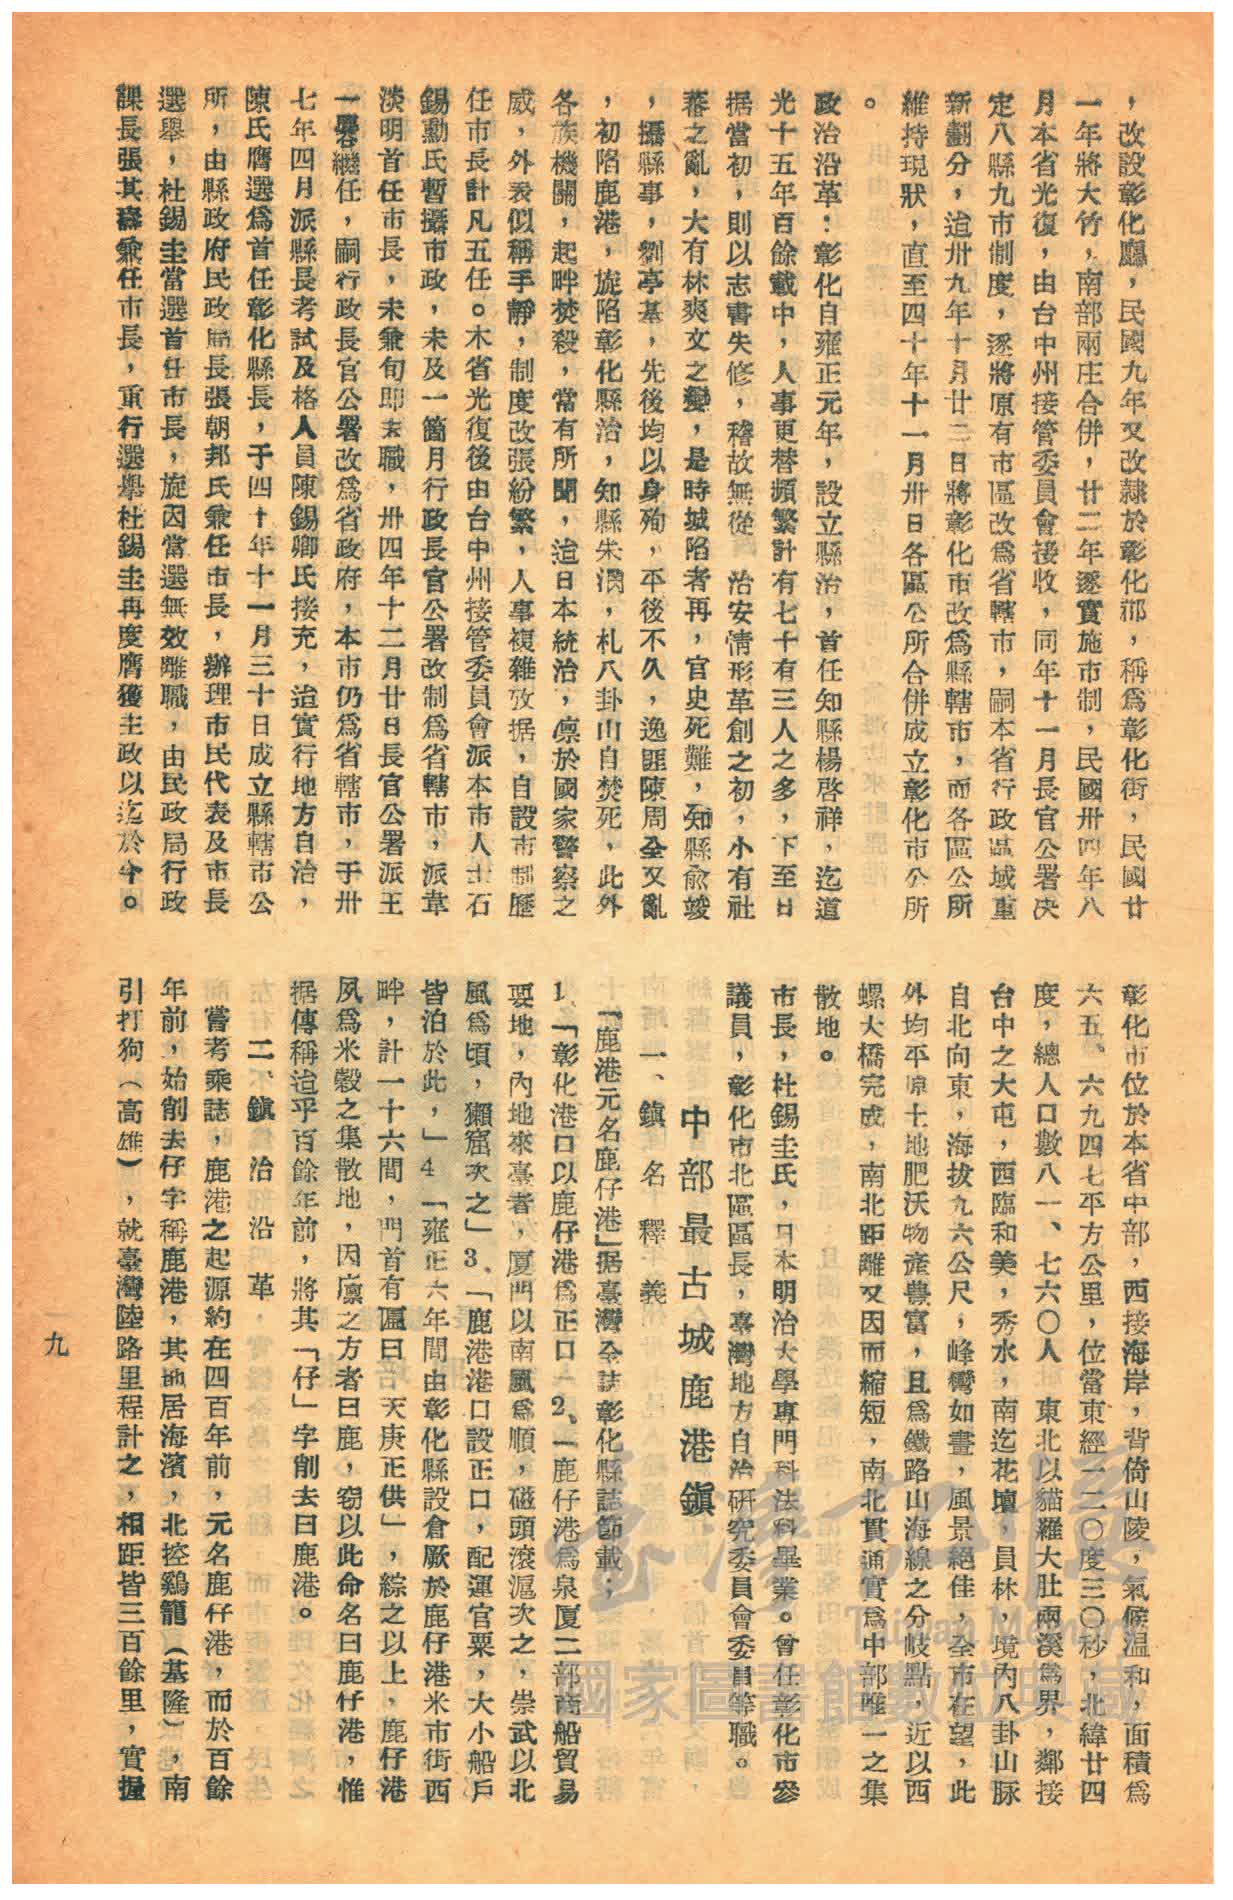 ，改設彰化廳，民國九年又改隸於彰化郡，稱爲彰化街，民國廿
一年將大竹，南部兩庄合併，廿二年遂實施市制，民國卅四年八
月本省光復，由台中州接管委員會接收，同年十一月長官公署決
定八縣九市制度，遂將原有市區改爲省轄市，嗣本省行政區域重
新劃分，迨卅九年十月廿二日將彰化市改爲縣轄市，而各區公所
維持現狀，直至四十年十一月卅日各區公所合併成立彰化市公所
。
政治沿革：彰化自雍正元年，設立縣治，首任知縣楊啓祥，迄道
光十五年百餘載中，人事更替頻繁計有七十有三人之多，下至日
据當初，則以志書失修，稽故無從　治安情形革創之初，小有社
蕃之亂，大有林爽文之變，是時城陷者再，官史死難，知縣俞竣
，攝縣事，劉亭基，先後均以身殉，平後不久，逸匪陳周全又亂
，初陷鹿港，旋陷彰化縣治，知縣朱瀾，札八卦山自焚死，此外
各族機關，起畔焚殺，常有所聞，迨日本統治，凛於國家警察之
威，外表似稱手靜，制度改張紛繁，人事複雜攷据，自設市制歷
任市長計凡五任。木省光復後由台中州接管委員會派本市人士石
錫勳氏暫攝市政，未及一箇月行政長官公署改制爲省轄市，派韋
淡明首任市長，未兼旬即去職，卅四年十二月廿日長官公署派王
一麐繼任，嗣行政長官公署改爲省政府，本市仍爲省轄市，于卅
七年四月派縣長考試及格人員陳錫卿氏接充，迨實行地方自治，
陳氏膺選爲首任彰化縣長，于四十年十一月三十日成立縣轄市公
所，由縣政府民政局長張朝邦氏兼任市長，辦理市民代表及市長
選舉，杜錫圭當選首任市長，旋因當選無效離職，由民政局行政
課長張其兼任市長，重行選舉杜錫圭再度膺獲主政以迄於今。
彰化市位於本省中部，西接海岸，背倚山陵，氣候温和，面積爲
六五、六九四七平方公里，位當東經一二〇度三〇秒，北緯廿四
度，總人口數八一、七六〇人　東北以貓羅大肚兩溪爲界，鄰接
台中之大屯，西臨和美，秀水，南迄花壇，員林，境內八卦山脉
自北向東，海拔九六公尺，峰彎如畫，風景絕佳，全市在望，此
外均平原土地肥沃物產豊富，且爲鐵路山海線之分岐點，近以西
螺大橋完成，南北距離又因而縮短，南北貫通實爲中部唯一之集
散地。
市長，杜錫圭氏，日本明治大學專門科法科畢業。曾任彰化市參
議員，彰化市北區區長，臺灣地方自治研究委員會委員等職。
中部最古城鹿港鎭
一、鎭名釋義
「鹿港元名鹿仔港」据臺灣全誌彰化縣誌節載；
1、「彰化港口以鹿仔港爲正口」2、「鹿仔港爲泉厦二部商船貿易
要地，內地來臺者，厦門以南風爲順，磁頭滾滬次之，崇武以北
風爲頃，獺窟次之」3、「鹿港港口設正口，配運官粟，大小船戶
皆泊於此，」4「雍正六年間由彰化縣設倉厫於鹿仔港米市街西
畔，計一十六間，門首有匾曰　天庚正供」，綜之以上，鹿仔港
夙爲米穀之集散地，因廩之方者曰鹿，窃以此命名曰鹿仔港，惟
据傳稱迨乎百餘年前，將其「仔」字削去曰鹿港。
二、鎭治沿革
嘗考乘誌，鹿港之起源約在四百年前，元名鹿仔港，而於百餘
年前，始削去仔字稱鹿港，其地居海濱，北控鷄籠（基隆），南
引打狗（高雄），就臺灣陸路里程計之，相距皆三百餘里，實握
一九
臺灣記憶
Taiwan Memory
國家圖書館數位典藏